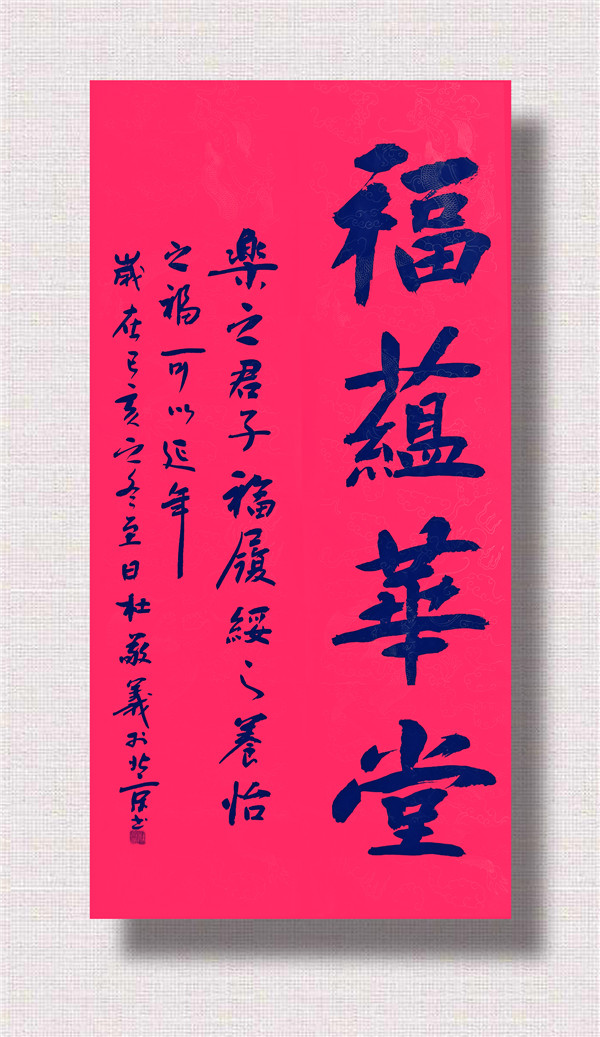 福蘊華堂
樂之君子福履綏之養怡
之福可以延年
歲在己亥之冬至日杜敬義於北京書